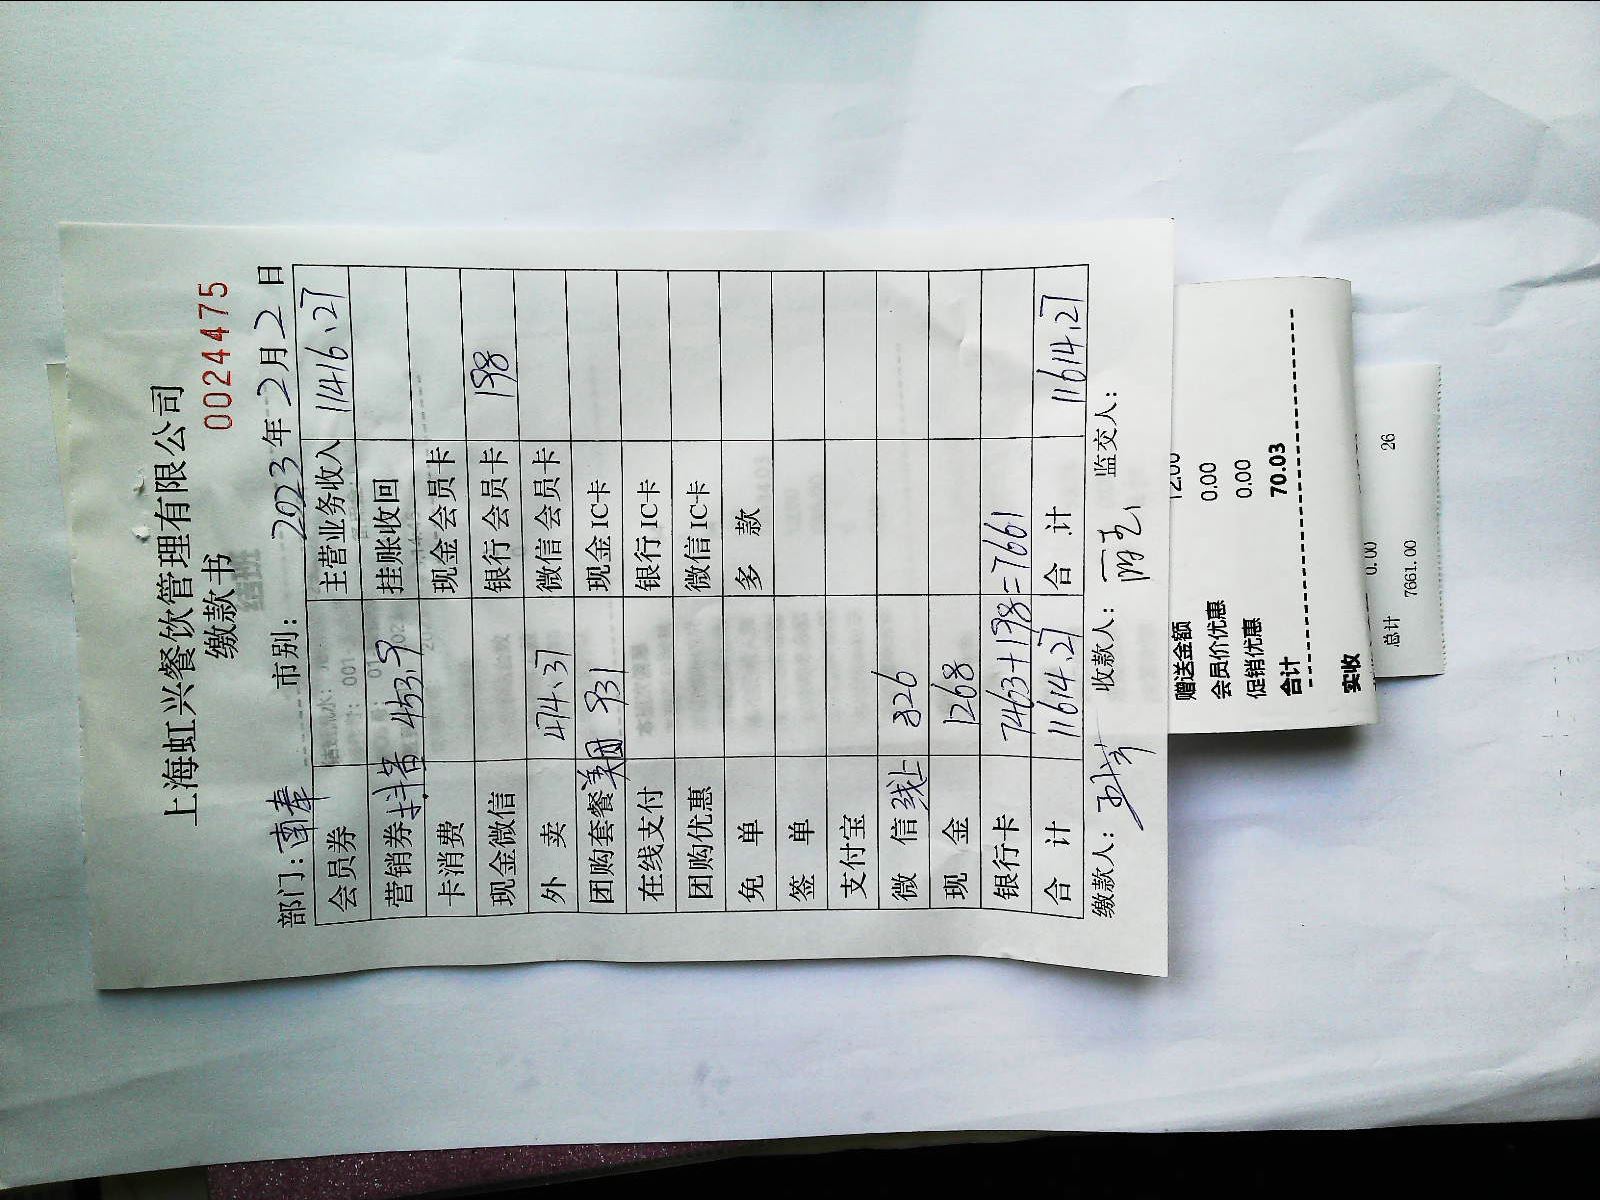 上海虹兴餐饮管理有限公司
缴款书
0024475
部门:南奉 市别: 2023年2月2日
会员券 主营业务收入 11416.27
营销券 抖音 453.9 挂账收回
卡消费 现金会员卡
现金微信 银行会员卡 198
外卖 474.37 微信会员卡
团购套餐 美团 931 现金IC卡
在线支付 银行IC卡
团购优惠 微信IC卡
免单 多款
签单
支付宝
微信 线上 826
现金 1268
银行卡 7463+198=7661
合计 11614.27 合计 11614.27
缴款人: 收款人: 监交人:
12.00
赠送金额 0.00
会员价优惠 0.00
促销优惠 0.00
合计 70.03
实收
0.00
总计 7661.00 26